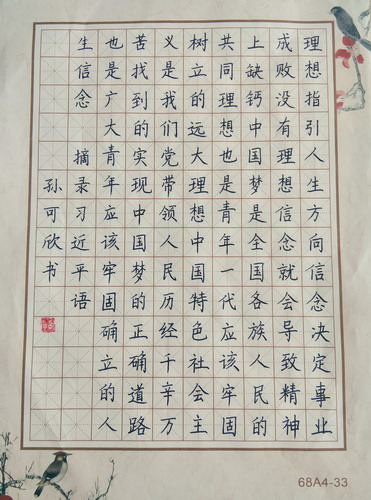 理想指引人生方向信念决定事业
成败没有理想信念就会导致精神
上缺钙中国梦是全国各族人民的
共同理想也是青年一代应该牢固
树立的远大理想中国特色社会主
义是我们党带领人民历经千辛万
苦找到的实现中国梦的正确道路
也是广大青年应该牢固确立的人
生信念 摘录习近平语
孙可欣书
68A4-33